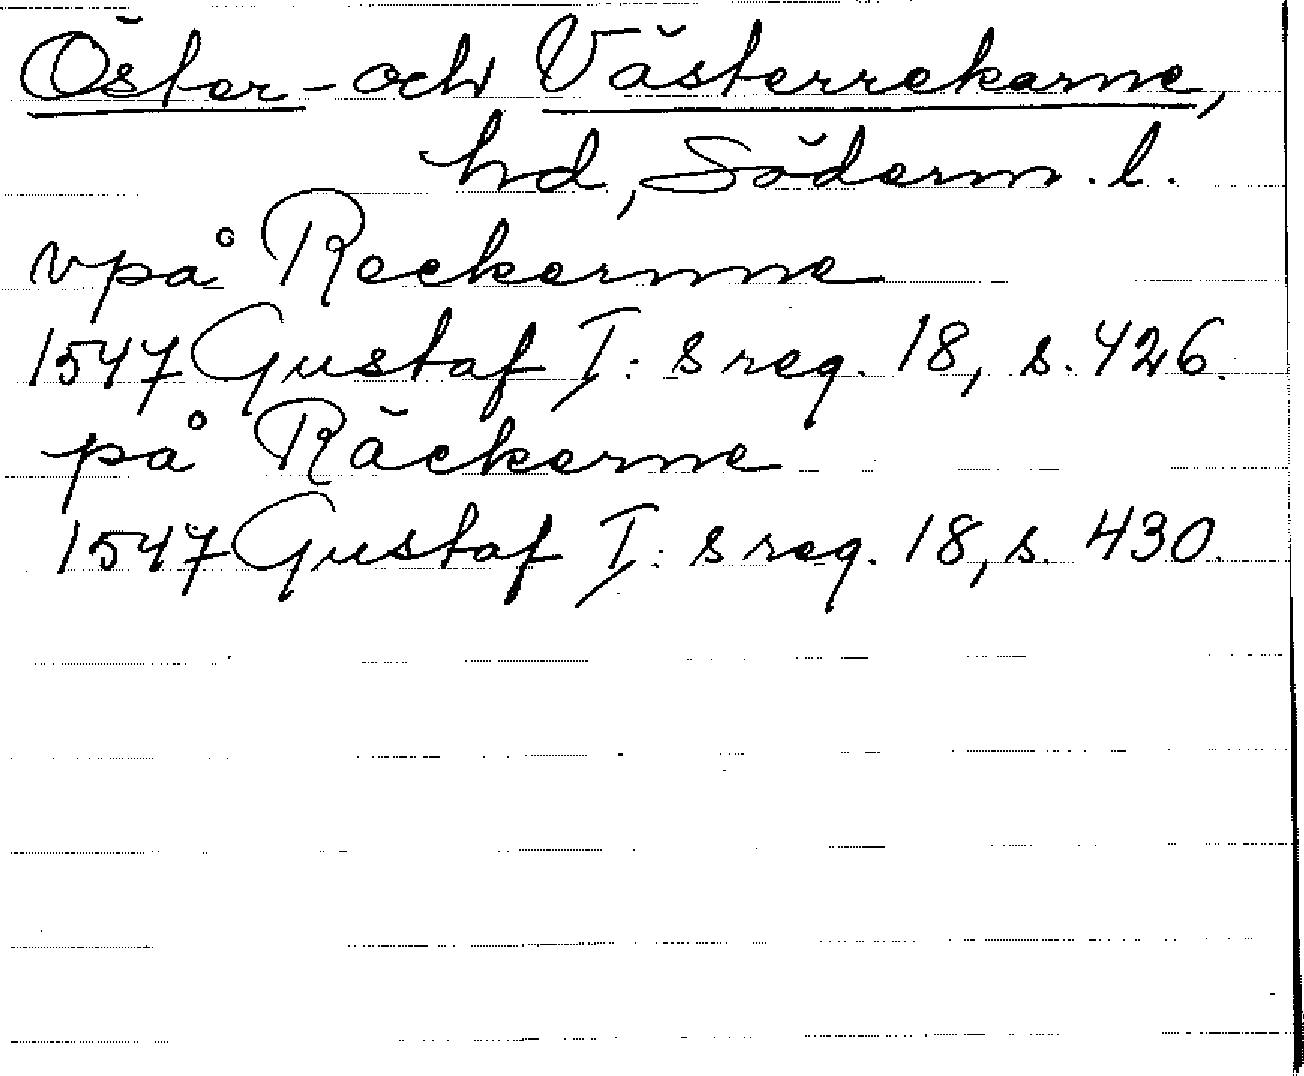 Öster- och Västerrekarne,
hd, Söderm. l.
vpå Reckernne
1547 Gustaf I: s reg. 18, s. 426.
på Räckerne
1547 Gustaf I: s reg. 18, s. 430.